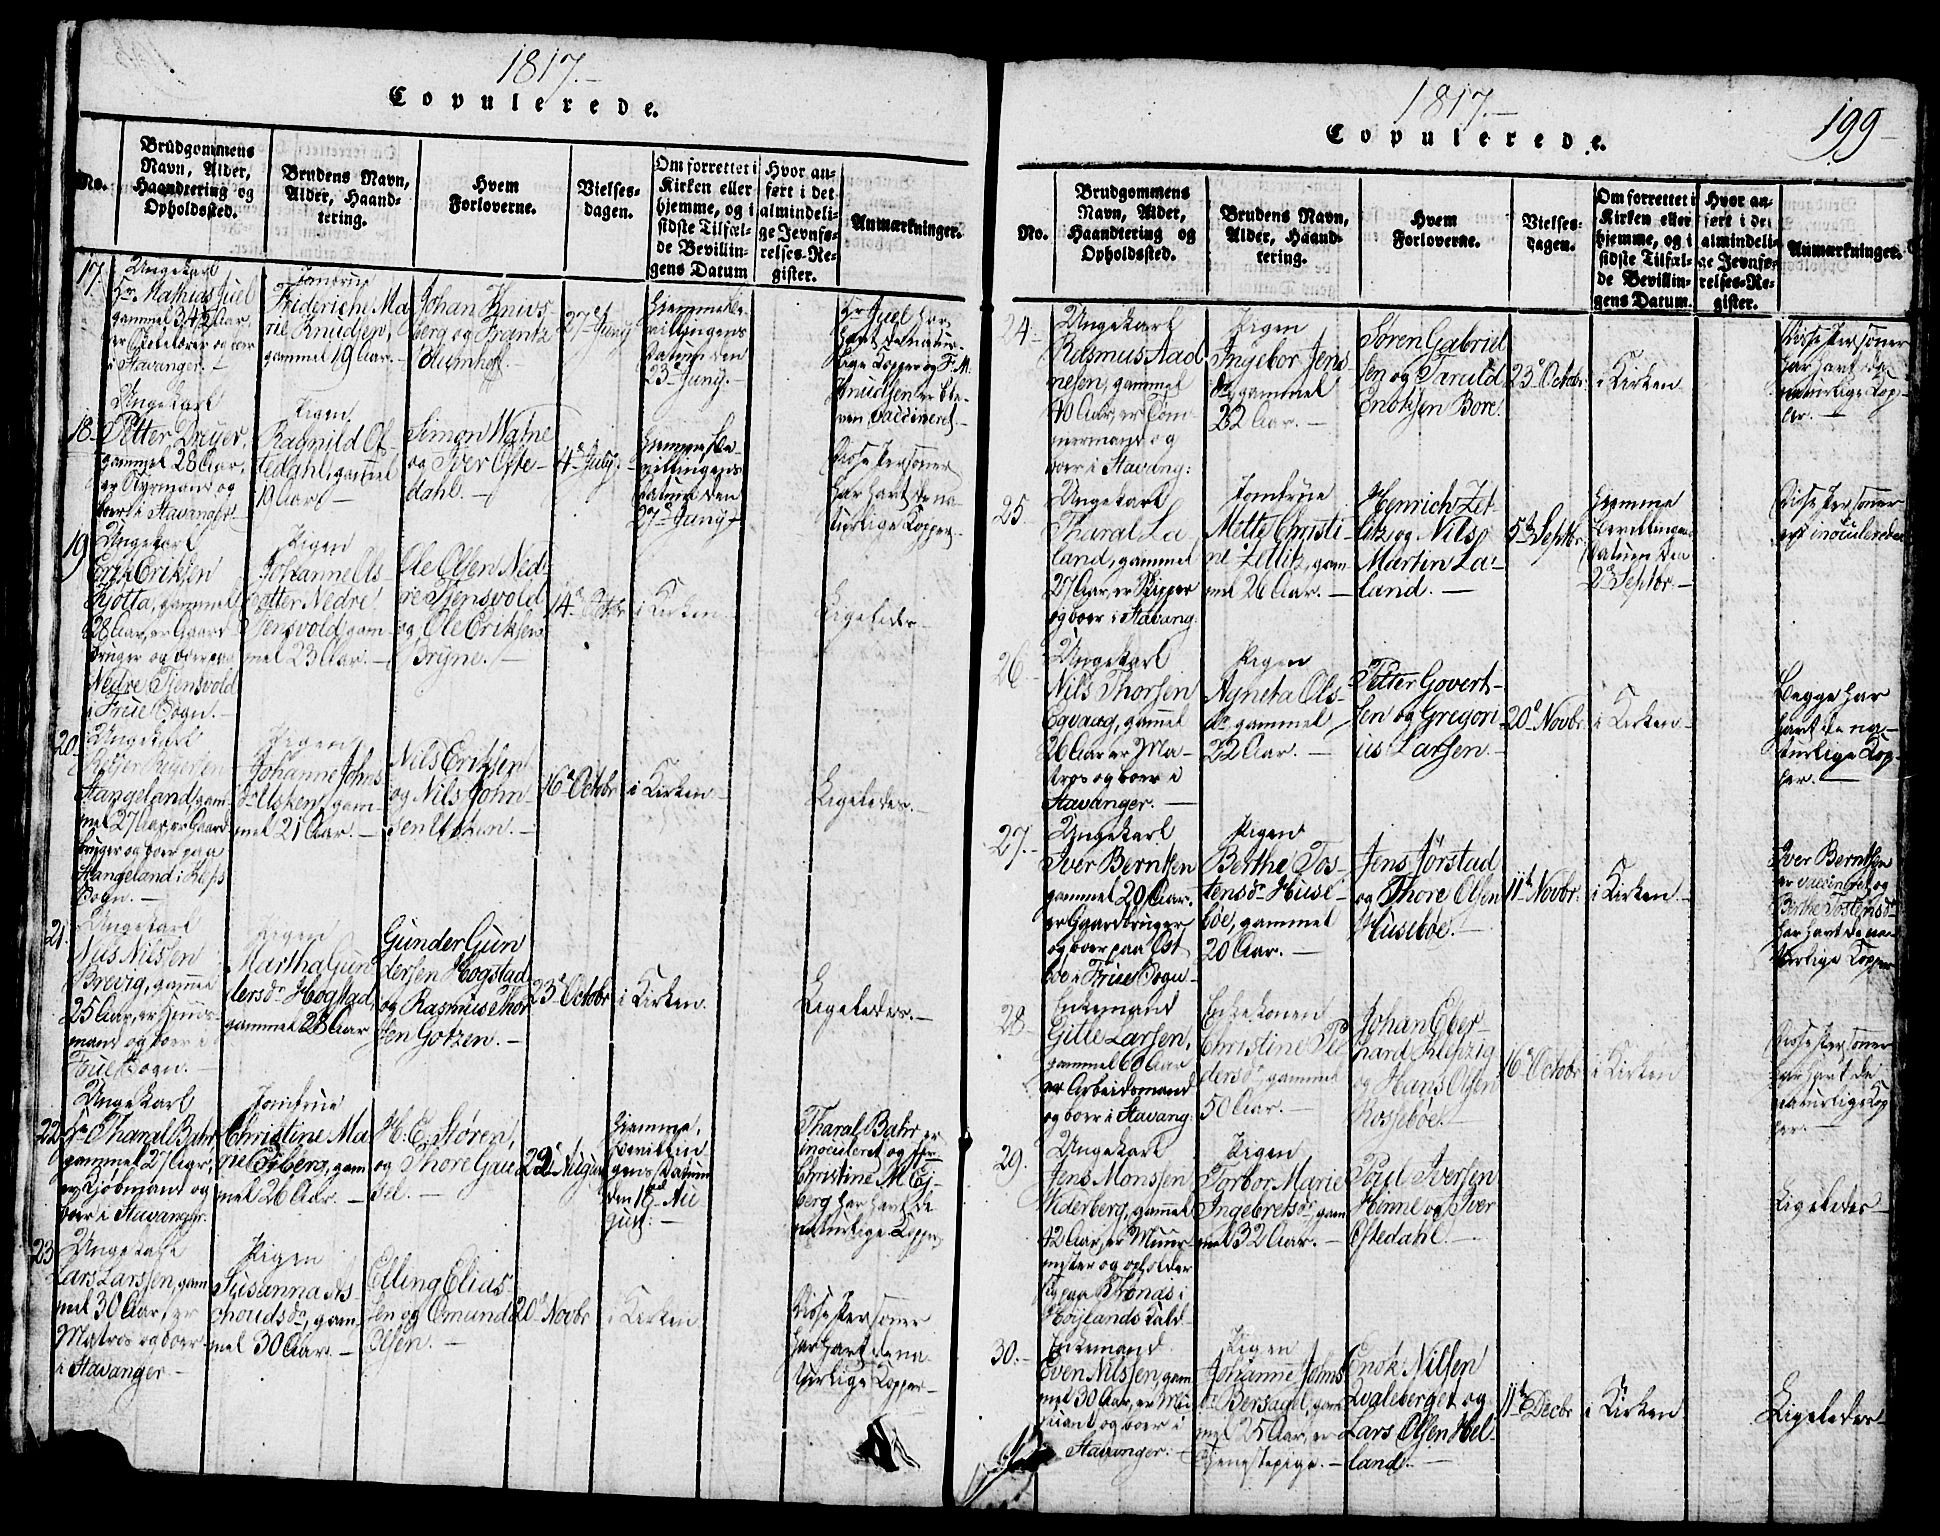 1817.-
Copulerede.
No.
Brudgommens
Navn, Alder,
Haandtering og
Opholdsted.
Brudens Navn,
Alder, Haand-
tering.
Hvem
Forloverne.
Vielses-
dagen.
Om forrettet i
Kirken eller
hjemme, og i
sidste Tilfæl-
de Bevillin-
gens Datum
Hvor an-
ført i det
almindeli-
ge Jevnfø-
relses-Re-
gister.
Anmærkninger.
17.
Ungekarl
Hr. Mathias Juel
gammel 34 2 Aar
i Stavanger.-
Jomfrue
Frideriche Ma
rie Knudsen,
gammel 19 Aar.-
Johan Knivs
berg og Frantz
27d Juny
Hiemme Be-
villingens
Datum den
23d Juny.-
Hr Juel har
havt de natur-
lige Kopper og F. M.
Knudsen er ble-
ven vaccineret.-
18.
Ungekarl
Petter Dreyer,
gammel 28 Aar,
er Styrmand og
boer i Stavanger.-
Pigen
Ragnild Of-
tedahl, gammel
19 Aar.-
Simon Malne
og Iver Ofte-
dahl.-
4d July.
Hiemme, Be-
villingens
Datum den
27d Juny-
Disse Personer
har havt de na-
turlige Kopper.
19.
Ungekarl
Erik Eriksen
Kjotta, gammel
28 Aar, er Gaard
bruger og boer paa
Nedre Tjensvold
i Frue Sogn.-
Pigen
Johanne Ols-
datter Nedre
Tjensvold, gam-
mel 23 Aar.-
Ole Olsen Ned-
re Tjensvold
og Ole Eriksen
Bryne.-
14d Octbr
i Kirken
Ligeledes
20.
Ungekarl
Reijer Reijersen
Stangeland, gam-
mel 27 Aar, er Gaard
bruger og boer paa
Stangeland i
Sogn.-
Pigen
Johanne Johns
dr Utsken, gam-
mel 21 Aar.-
Nils Eriksen
og Nils John-
sen Utsken.-
16d Octobr
i Kirken
Ligeledes.
21.
Ungekarl
Nils Nilsen
Brevig, gammel
25 Aar, er Huus-
mand og boer i
Frue Sogn.
Pigen
Martha Gun
dersdr Hogstad,
gammel 28 Aar
Gunder Gun
dersen Hogstad
og Rasmus Thor
sen Gotzen.-
23d Octobr
i Kirken
Ligeledes.-
22.
Ungekarl
Hr Tharal Bahr
gammel 27 Aar,
er Kjøbmand og
boer i Stavanger.
Jomfrue
Christine Ma
rie Ejberg, gam
mel 26 Aar.-
H: E. Støren,
og Thore Gau
sel.-
22d August
Hiemme,
Bevillin
gens Datum
den 16d Au
gust.-
Tharal Bahr er
inoculeret og
Christine M. Ej-
berg har havt de
naturlige Kopper
23.
Ungekarl
Lars Larsen, gam
mel 30 Aar, er
Matros og boer
i Stavanger-
Pigen
Susanna As
choudsdr, gam-
mel 30 Aar.-
Elling Elias-
sen og Omund
Olsen.-
20d Novbr
i Kirken
Disse Personer
har havt de na-
turlige Kopper-
1817.-
Copulerede.
199-
No.
Brudgommens
Navn, Alder,
Haandtering og
Opholdsted.
Brudens Navn,
Alder, Haand-
tering.
Hvem
Forloverne.
Vielses-
dagen.
Om forrettet i
Kirken eller
hjemme, og i
sidste Tilfæl-
de Bevillin-
gens Datum.
Hvor an-
ført i det
almindeli-
ge Jevnfø-
relses-Re-
gister.
Anmærkninger.
24.-
Ungekarl
Rasmus Aad
nesen, gammel
40 Aar, er Tøm
mermand og
boer i Stavang:
Pigen
Ingebor Jens
dr, gammel
22 Aar.-
Søren Gabriel
sen og Taruld
Enoksen Bore.
23d Octobr.
i Kirken
Disse Personer
har havt de
naturlige Kop-
per.-
25.
Ungekarl
Tharal La
land, gammel
27 Aar, er Skipper
og boer i Stavang:
Jomfrue
Mette Christi-
ne Zetlitz, gam
mel 26 Aar.-
Henrich Zet-
litz og Nils
Martin La-
land.-
5d Septbr.
Hiemme
Bevillingens
Datum den
2d Septbr.-
Disse Personer
ere inoculerede
26.
Ungekarl
Nils Thorsen
Egvaag, gamel
26 Aar er Ma-
tros og boer i
Stavanger.-
Pigen
Agneta Ols-
dr gammel
22 Aar.-
Petter Govert-
sen og Gregori-
us Larsen.-
20d Novbr.
i Kirken-
Begge har
havt de na-
turlige Kop-
per.-
27.-
Ungekarl
Iver Berntsen
gammel 20 Aar.
er Gaardbruger
og boer paa Ost
boe i Frue Sogn-
Pigen
Berthe Tos-
tensdr Huse-
böe, gammel
20 Aar.-
Jens Jørstad
og Thore Olsen
Huseböe.-
11d Novbr:
i Kirken.-
Iver Berntsen
er vaccineret og
Berthe Tostensdr
har havt de na-
turlige Kopper
28.-
Enkemand
Gitle Larsen,
gammel 60 Aar
er Arbeidsmand
og boer i Stavang:
Enkekonen
Christine Pe
dersdr, gammel
50 Aar.-
Johan Eber-
hard Kleyzig
og Hans Olsen
Rosseböe.-
16d Octobr
i Kirken
Disse Personer
har havt de
naturlige Kop
per.-
29.
Ungekarl
Jens Monssen
Wederberg, gammel
42 Aar, er Muur-
mester og opholder
sig paa Tronæs i
Höylands Kald-
Pigen
Torbor Marie
Ingebretsdr, gam
mel 32 Aar.-
Poul Iversen
Hinne og Iver
Oftedahl.-
Ligeledes
30.-
Enkemand
Even Nilssen, gam
mel 30 Aar, er Mu
sicant og boer i
Stavanger.-
Pigen
Johanne Johns
dr Bersagel, gam
mel 25 Aar, er
Tjenstepige.-
Enok Nilsen
Qvaleberget og
Lars Olsen Hel-
land.-
11d Decbr
i Kirken
Ligeledes